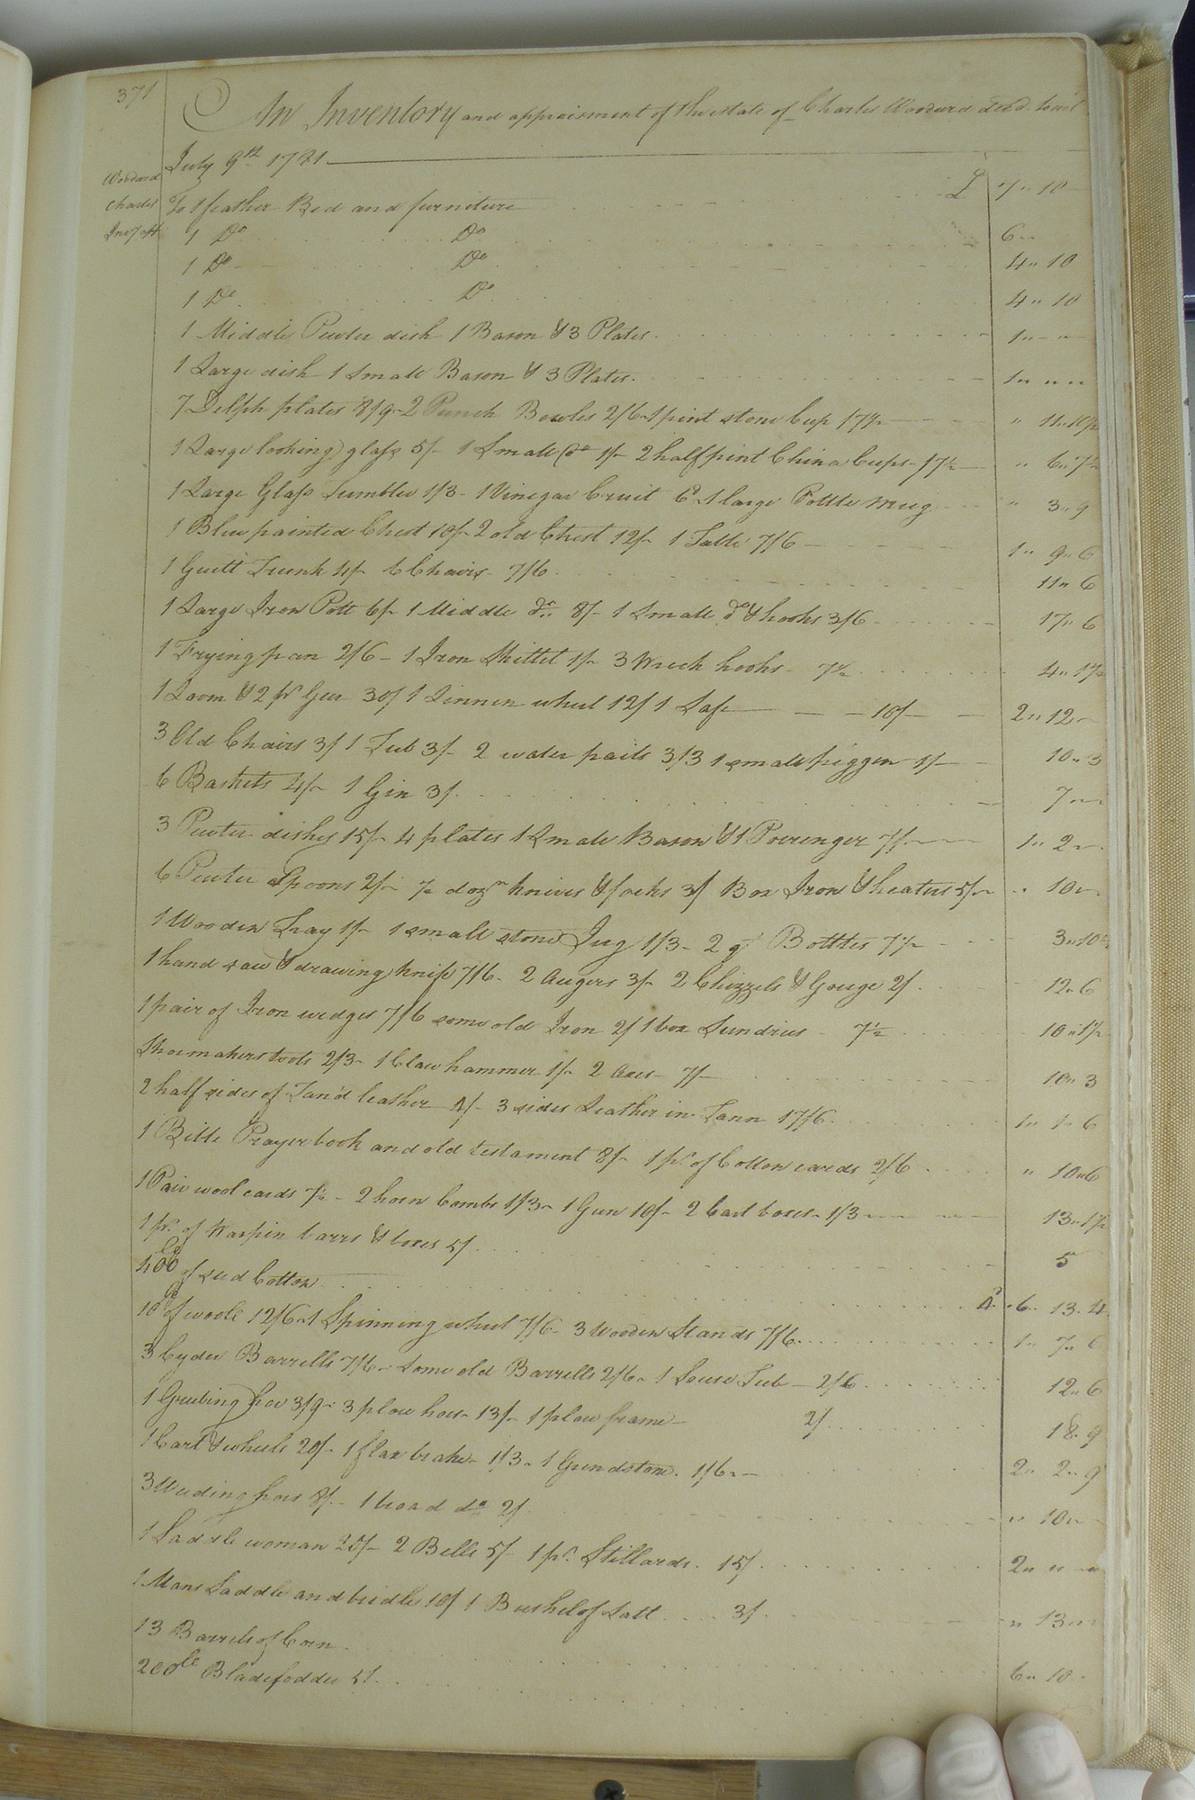 371
An Inventory and appraisment of the estate of Charles Woodard decd. taken
July 9th 1781
Woodard
Charles
Invy &c
To 1 feather Bed and furniture £ 7 " 10
1 Do Do 6 "
1 Do Do 4 " 10
1 Do Do 4 " 10
1 Middle Pewter dish 1 Bason & 3 Plates 1 " - "
1 Large dish 1 Small Bason & 3 Plates 1 " " "
7 Delph plates 8/9 - 2 Punch Bowles 2/6 - 1 pint stone Cup 7½ " 11 " 10½
1 Large looking glass 5/- 1 Small do 1/- 2 half pint China Cups - 7½ " 6 " 7½
1 Large Glass Tumbler 1/3 - 1 Vinegar Cruit 6d 1 large Pottle mug " 3 " 9
1 Blew painted Chest 10/- 2 old Chest 12/- 1 Table 7/6 1 " 9 " 6
1 Guilt Trunk 4/- 6 Chairs 7/6 11 " 6
1 Large Iron Pott 6/- 1 Middle do 8/- 1 Small do & hooks 3/6 17 " 6
1 Frying pan 2/6 - 1 Iron Skittel 1/- 3 hooks - 7½ 4 " 1½
1 Loom & 2 pr Geer 30/ 1 Linnen wheel 12/ 1 Safe 10/- 2 " 12 "
3 Old Chairs 3/ 1 Tub 3/- 2 water pails 3/3 1 small piggen 1/- 10 " 3
6 Baskets 4/- 1 Gin 3/ 7 " "
3 Pewter dishes 15/- 4 plates 1 Small Bason & 1 Porrenger 7/- 1 " 2 "
6 Pewter Spoons 2/- ½ dozn knives & forks 3/ Box Iron & heaters 5/- " 10 "
1 Wooden Tray 1/- 1 small stone Jug 1/3 - 2 qt Bottles 7½ 3 " 10½
1 hand saw & drawing knife 7/6 - 2 Augers 3/- 2 Chizzels & Gouge 2/ 12 " 6
1 pair of Iron wedges 7/6 some old Iron 2/ 1 box Sundries 7½ 10 " 1½
Shoemakers tools 2/3 - 1 Claw hammer 1/- 2 Axes - 7/- 10 " 3
2 half sides of Tan'd leather 4/- 3 sides Leather in Tann 17/6 1 " 1 " 6
1 Bible Prayer book and old testament 8/- 1 pr of Cotton cards 2/6 " 10 " 6
1 Pair wool cards 7½ - 2 horn Combs 1/3 - 1 Gun 10/- 2 Cart boxes - 1/3 13 " 1½
1 pr of Warpin barrs & boxes 5/ 5
400 lb of seed Cotton 4d " 6 " 13 " 4
10 lb of wooll 12/6 - 1 Spinning wheel 7/6 - 3 Wooden Stands 7/6 1 " 7 " 6
3 Cyder Barrells 7/6 - some old Barrells 2/6 - 1 Souse Tub - 2/6 12 " 6
1 Grubing hoe 3/9 - 3 plow hoes - 13/- 1 plow frame - 2/ 18 " 9
1 Cart & wheels 20/- 1 flax brake - 1/3 - 1 Grindstone 1/6 - 2 " 2 " 9
3 Weeding hoes 8/- 1 broad do 2/ " 10 "
1 Saddle woman 20/- 2 Bells 5/- 1 pr. Stillards - 15/ 2 " " "
1 Mans Saddle and bridle 10/ 1 Bushel of Salt 3/ " 13 "
13 Barrels of Corn 6 " 10 -
200 lb Bladefodder 5/